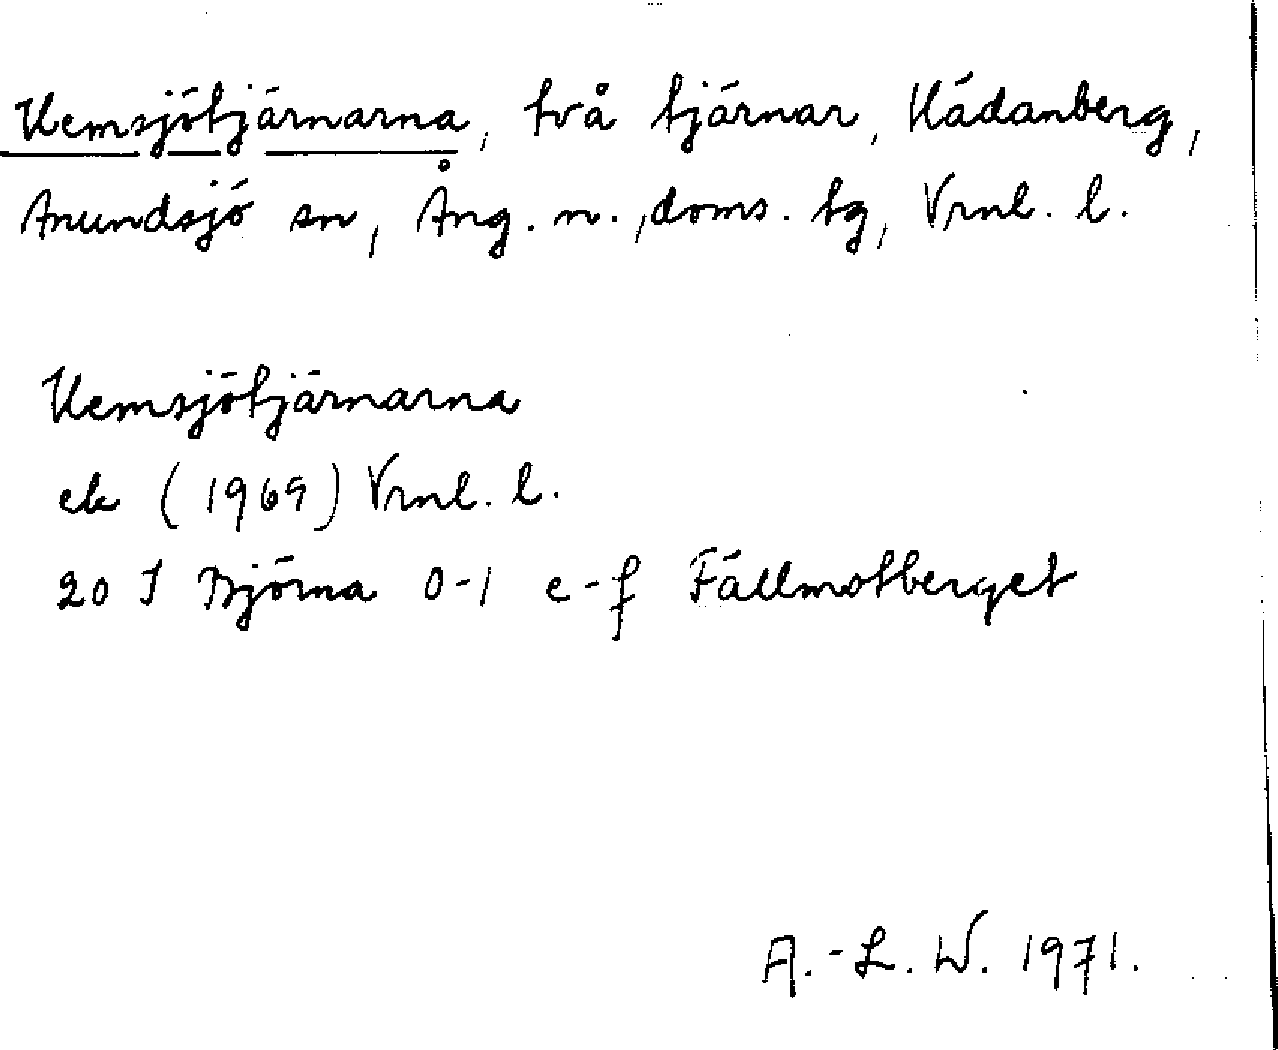 Kemsjötjärnarna, två tjärnar, Kädanberg,
Anundsjö sn, Ång. n., doms. tg, Vrnl. l.
Kemsjötjärnarna
ek (1969) Vrnl. l.
20 J Björna 0-1 e-f Fällmotberget
A.-L. W. 1971.